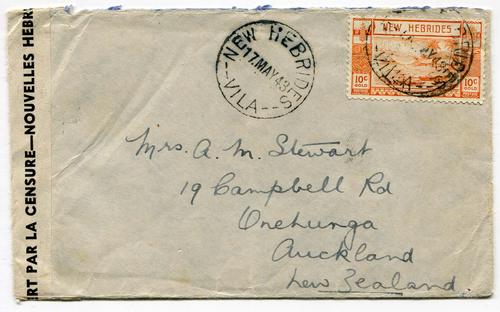 RT PAR LA CENSURE—NOUVELLES HEBR
NEW HEBRIDES
17.MAY.43
--VILA--
NEW HEBRIDES
10c
GOLD
10c
GOLD
Mrs. A. M. Stewart
19 Campbell Rd
Onehunga
Auckland
New Zealand